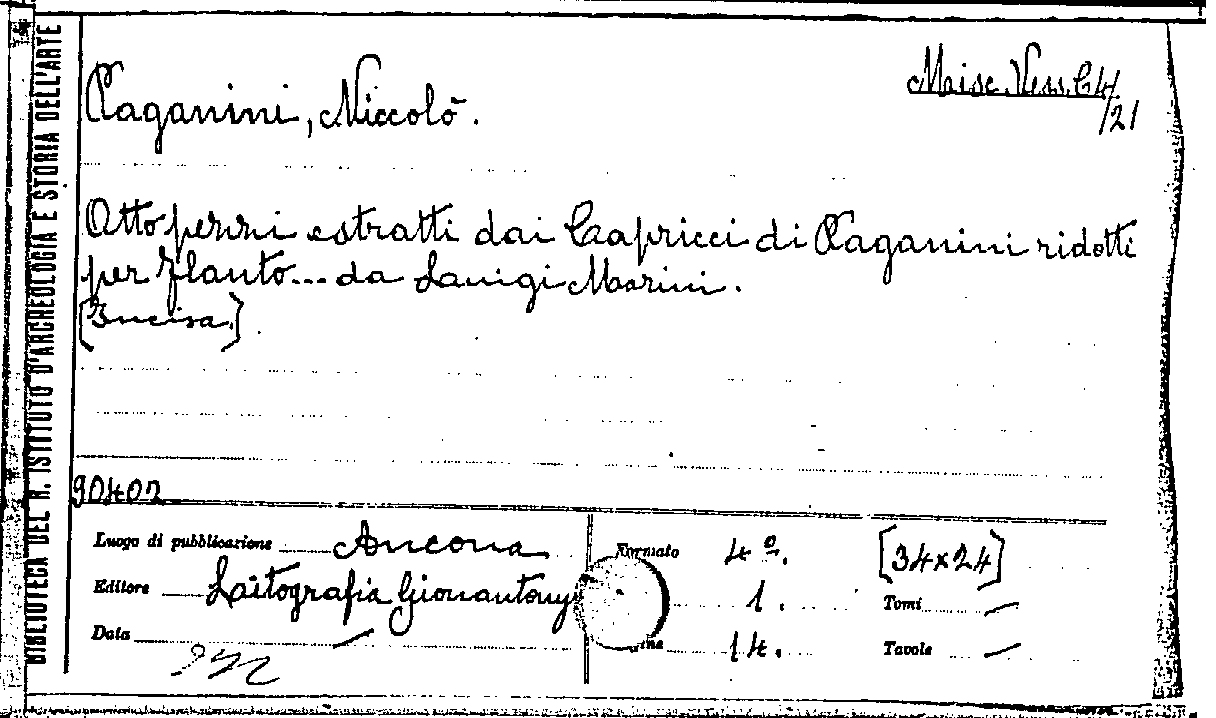 BIBLIOTECA DEL R. ISTITUTO D'ARCHEOLOGIA E STORIA DELL'ARTE
Paganini, Niccolò.
Misc. Vess. C4/
/21
Otto pezzi estratti dai Capricci di Paganini ridotti
per flauto... da Luigi Marini.
[Incisa].
90402
Luogo di pubblicazione Ancona
Formato 4º. [34×24]
Editore Litografia Gionantony
1. Tomi —
Data —
14. Tavole —